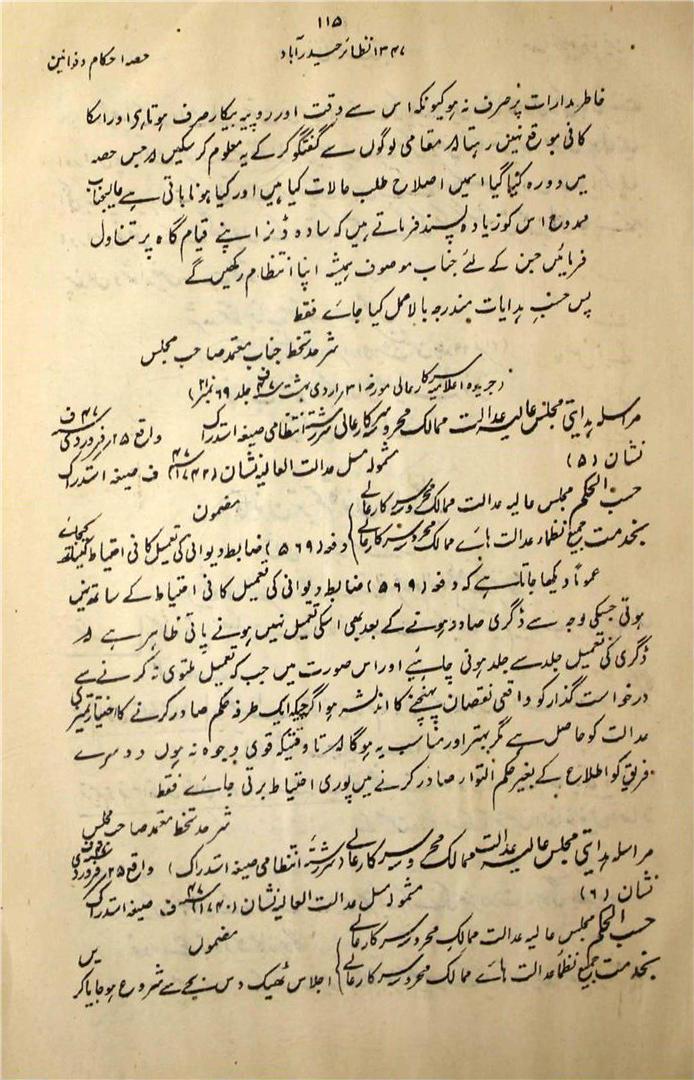 ۱۱۵
حصہ احکام و قوانین ۱۳۴۷ نظائر حیدرآباد
خاطر مدارات پر صرف نہ ہو کیونکہ اس سے وقت اور روپیہ بیکار صرف ہوتا ہے اور اسکا
کافی موقع نہیں رہتا کہ مقامی لوگوں سے گفتگو کر کے یہ معلوم کر سکیں کہ جس حصہ
میں دورہ کیا گیا اسمیں اصلاح طلب حالات کیا ہیں اور کیا ہونا باقی ہے عالیجناب
ممدوح اس کو زیادہ پسند فرماتے ہیں کہ سادہ ڈنر اپنے قیام گاہ پر تناول
فرمائیں جس کے لئے جناب موصوف ہمیشہ اپنا انتظام رکھیں گے
پس حسبہ ہدایات مندرجہ بالا عمل کیا جائے فقط
شرحدستخط جناب معتمد صاحب مجلس
(جریدہ اعلامیہ سرکارعالی مورخہ ۳۱ اردی بہشت ۴۷ ف جلد ۶۹ نمبر ۲۱)
مراسلہ ہدایتی مجلس عالیہ عدالت ممالک محروسہ سرکارعالی سررشتہ انتظامی صیغہ استدراک واقع ۲۵ فروردی ۴۷ ف
نشان (۵) مشمولہ مسل عدالت العالیہ نشان (۱۷۴۲) ۴۷ ف صیغہ استدراک
حسب الحکم مجلس عالیہ عدالت ممالک محروسہ سرکارعالی مضمون
بخدمت جمیع نظماء عدالت ہائے ممالک محروسہ سرکارعالی دفعہ (۵۶۹) ضابطہ دیوانی کی تعمیل کافی احتیاط کیساتھ کیجائے
عموماً دیکھا جاتا ہے کہ دفعہ (۵۶۹) ضابطہ دیوانی کی تعمیل کافی احتیاط کے ساتھ نہیں
ہوتی جسکی وجہ سے ڈگری صادر ہونے کے بعد بھی اسکی تعمیل نہیں ہونے پاتی ظاہر ہے کہ
ڈگری کی تعمیل جلد سے جلد ہونی چاہئے اور اس صورت میں جب کہ تعمیل ملتوی نہ کرنے سے
درخواست گذار کو واقعی نقصان پہنچنے کا اندیشہ ہو اگرچیکہ ایک طرفہ حکم صادر کرنے کا اختیار تمیزی
عدالت کو حاصل ہے مگر بہتر اور مناسب یہ ہوگا کہ تا وقتیکہ قوی وجوہ نہ ہوں دوسرے
فریق کو اطلاع کے بغیر حکم التوار صادر کرنے میں پوری احتیاط برتی جائے فقط
شرحدستخط معتمد صاحب مجلس
مراسلہ ہدایتی مجلس عالیہ عدالت ممالک محروسہ سرکارعالی (سررشتہ انتظامی صیغہ استدراک) واقع ۲۵ فروردی
نشان (۶) مشمولہ مسل عدالت العالیہ نشان (۱۷۴۰) ۴۷ ف صیغہ استدراک
حسب الحکم مجلس عالیہ عدالت ممالک محروسہ سرکارعالی مضمون
بخدمت جمیع نظماء عدالت ہائے ممالک محروسہ سرکارعالی اجلاس ٹھیک دس بجے سے شروع ہو جایا کریں